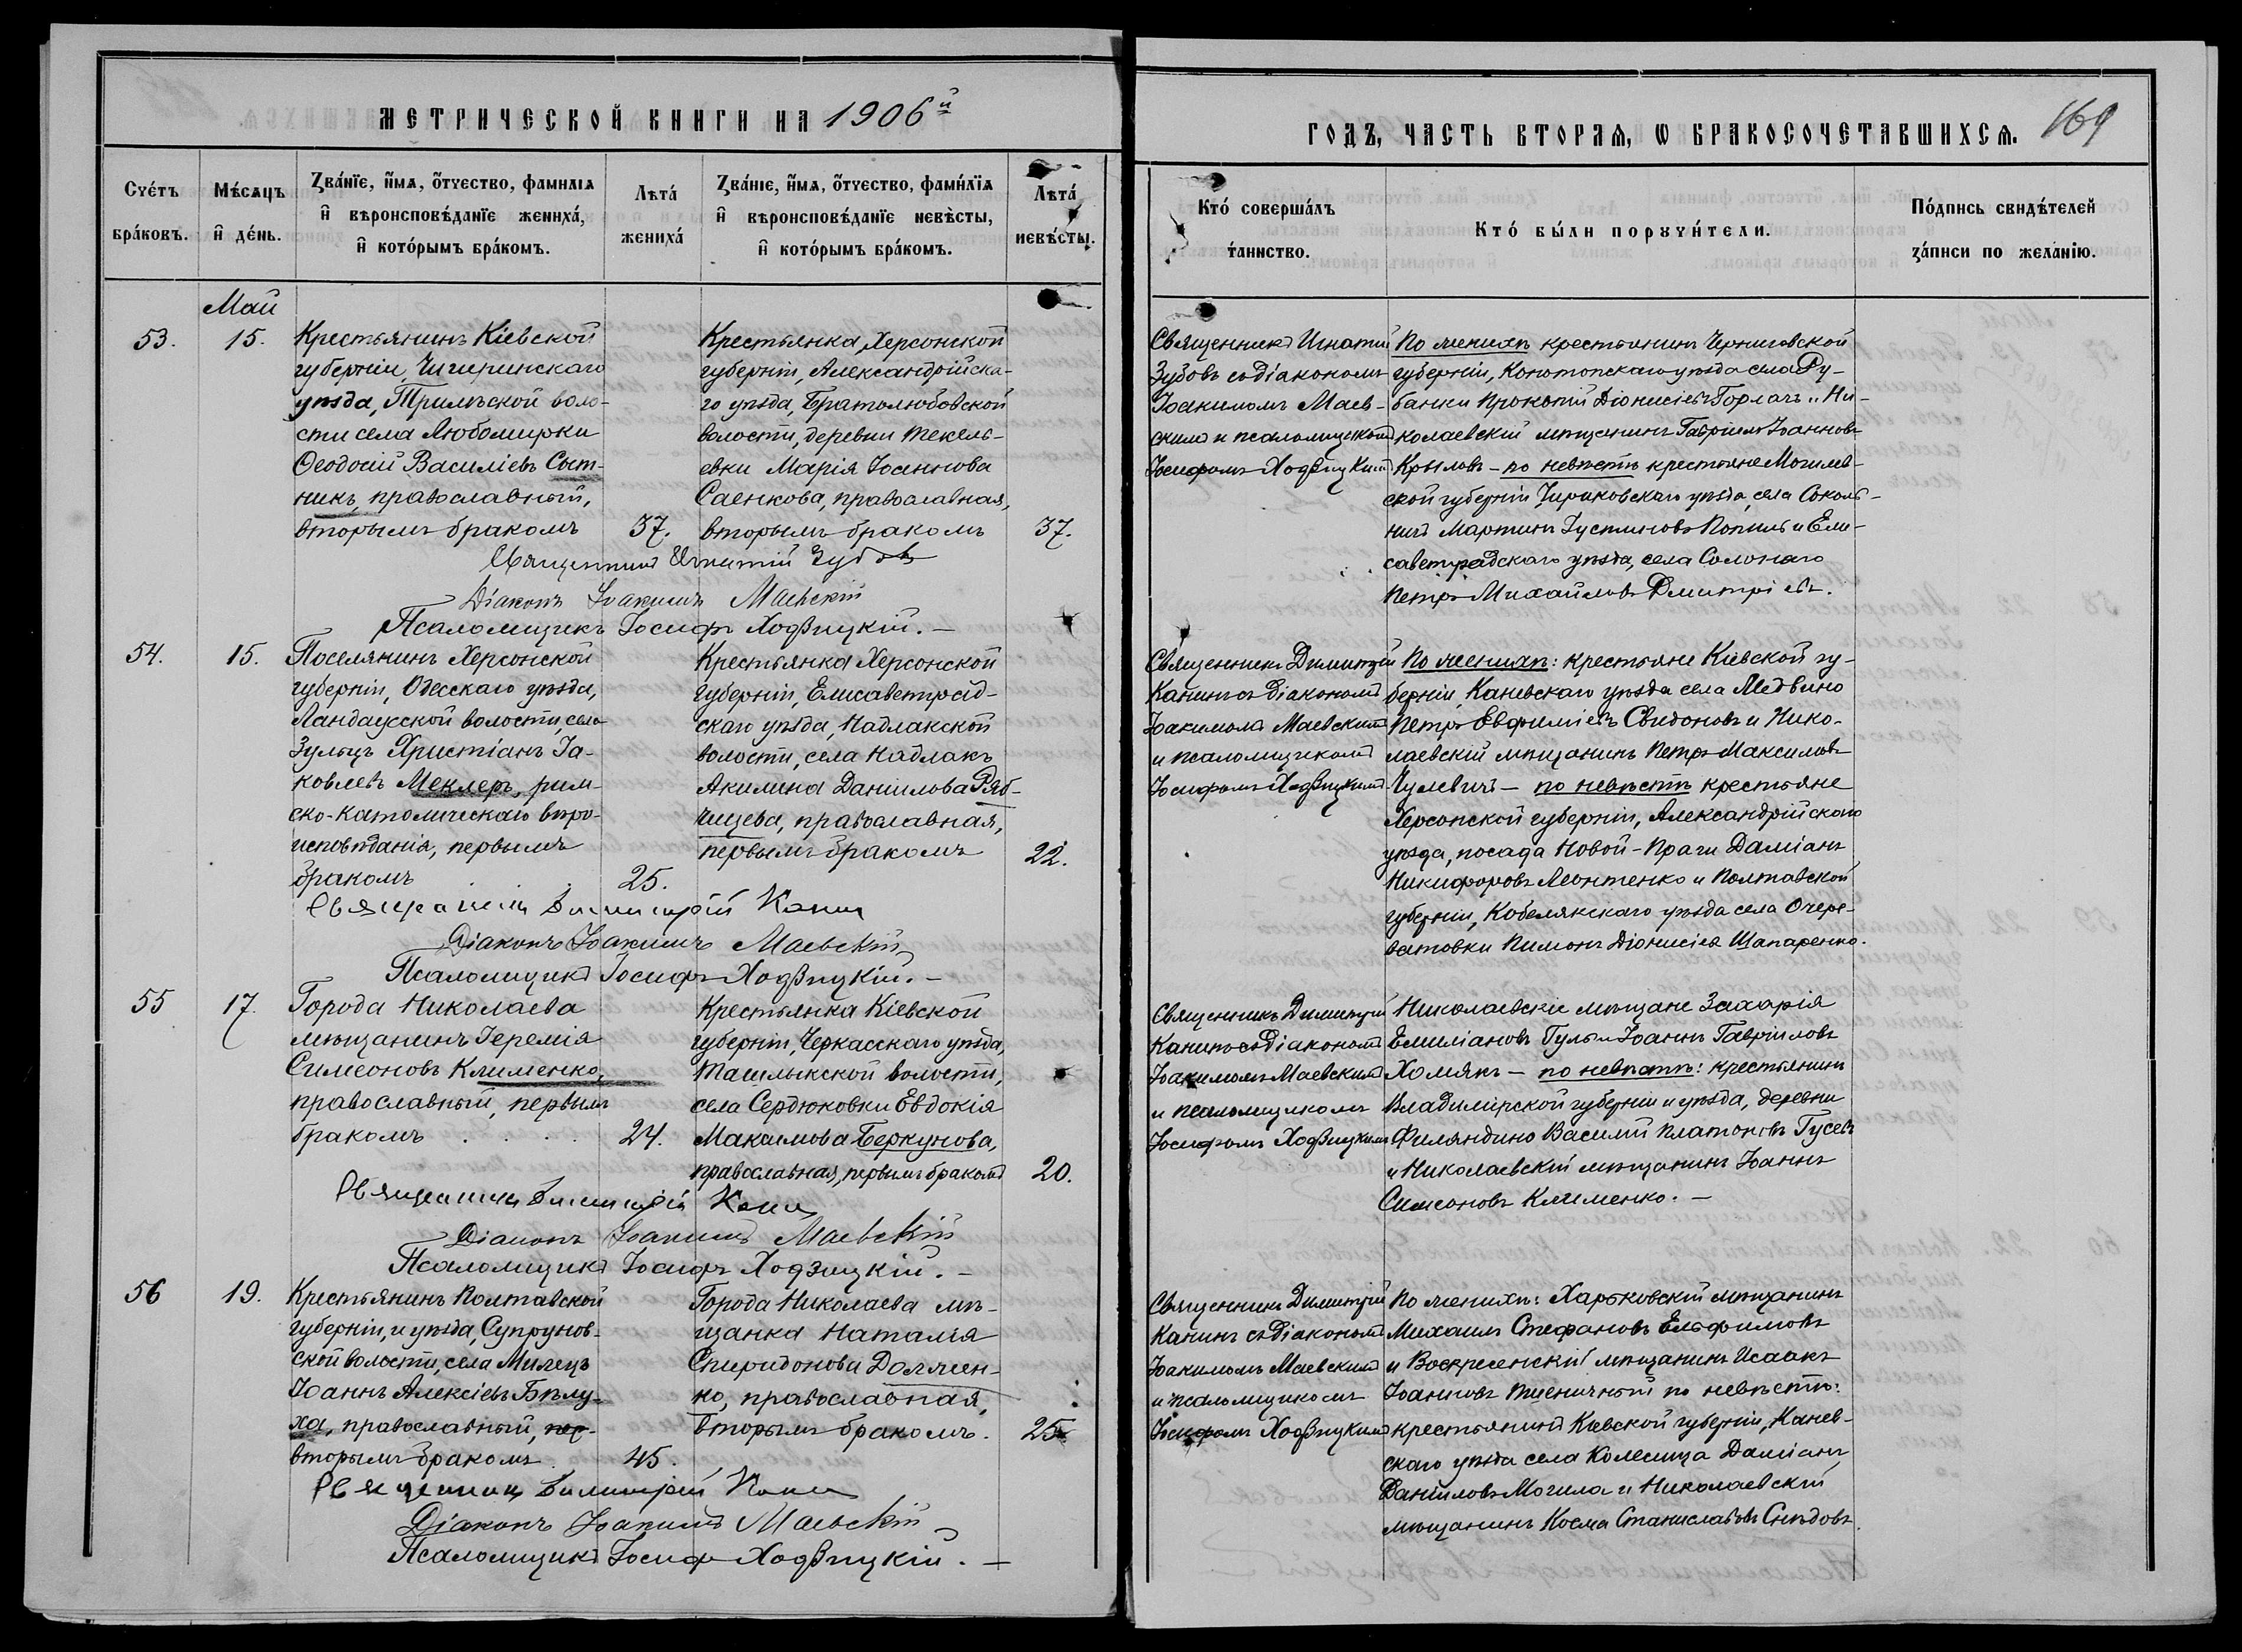 МЕТРИЧЕСКОЙ КНИГИ НА 1906й
ГОДЪ, ЧАСТЬ ВТОРАЯ, Ѡ БРАКОСОЧЕТАВШИХСѦ.
169
Счетъ браковъ.
Мѣсѧцъ и день.
Званїе, имѧ, отчество, фамилїѧ
и вѣроисповѣданїе жениха,
и которымъ бракомъ.
Лѣта жениха
Званїе, имѧ, отчество, фамилїѧ
и вѣроисповѣданїе невѣсты,
и которымъ бракомъ.
Лѣта невѣсты.
Кто совершалъ таинство.
Кто были поручители.
Подпись свидѣтелей
записи по желанію.
Май
53.
15.
Крестьянинъ Кіевской
губерніи, Чигиринскаго
уѣзда, Трилѣской воло-
сти села Любомирки
Ѳеодосій Василіевъ Сыт-
никъ, православный,
вторымъ бракомъ
37.
Крестьянка Херсонской
губерніи, Александрійска-
го уѣзда, Братолюбовской
волости, деревни Текель-
евки Марія Іоаннова
Саенкова, православная,
вторымъ бракомъ
37.
Священникъ Игнатій
Зубовъ съ діакономъ
Іоакимомъ Маев-
скимъ и псаломщикомъ
Іосифомъ Ходзицкимъ
По женихѣ крестьянинъ Черниговской
губерніи, Конотопскаго уѣзда села Ру-
банки Прокопій Діонисіевъ Горлачъ и Ни-
колаевскій мѣщанинъ Гавріилъ Іоанновъ
Крыловъ – по невѣстѣ крестьяне Могилев-
ской губерніи Чериковскаго уѣзда, села Соколь-
ничъ Мартинъ Іустиновъ Попилъ и Ели-
саветградскаго уѣзда, села Солонаго
Петръ Михайловъ Дмитріевъ.
Священникъ Игнатій Зубовъ
Діаконъ Іоакимъ Маевскій
Псаломщикъ Іосифъ Ходзицкій. –
54.
15.
Поселянинъ Херсонской
губерніи, Одесскаго уѣзда,
Ландауской волости, села
Зульцъ Христіанъ Іа-
ковлевъ Меклеръ, рим-
ско-католическаго вѣро-
исповѣданія, первымъ
бракомъ
25.
Крестьянка Херсонской
губерніи, Елисаветград-
скаго уѣзда, Надлакской
волости, села Надлакъ
Акилина Даніилова Ряб-
чицева, православная,
первымъ бракомъ
22.
Священникъ Димитрій
Канинъ съ діакономъ
Іоакимомъ Маевскимъ
и псаломщикомъ
Іосифомъ Ходзицкимъ
По женихѣ: крестьяне Кіевской гу-
берніи, Каневскаго уѣзда села Медвино
Петръ Евфиміевъ Свидоновъ и Нико-
лаевскій мѣщанинъ Петръ Максимовъ
Чулевичъ – по невѣстѣ крестьяне
Херсонской губерніи, Александрійскаго
уѣзда, посада Новой-Праги Даміанъ
Никифоровъ Леонтенко и Полтавской
губерніи, Кобелякскаго уѣзда села Очере-
ватовки Пимонъ Діонисіевъ Шапаренко.
Священникъ Димитрій Канинъ
Діаконъ Іоакимъ Маевскій
Псаломщикъ Іосифъ Ходзицкій. –
55
17.
Города Николаева
мѣщанинъ Іеремія
Симеоновъ Клименко,
православный, первымъ
бракомъ . . . .
24.
Крестьянка Кіевской
губерніи, Черкасскаго уѣзда,
Ташлыкской волости,
села Сердюковки Евдокія
Максимова Беркунова,
православная, первымъ бракомъ
20.
Священникъ Димитрій
Канинъ съ діакономъ
Іоакимомъ Маевскимъ
и псаломщикомъ
Іосифомъ Ходзицкимъ
Николаевскіе мѣщане Захарія
Емиліановъ Гулъ и Іоаннъ Гавріиловъ
Хомякъ – по невѣстѣ: крестьянинъ
Владимірской губерніи и уѣзда, деревни
Филяндино Василій Платоновъ Гусевъ
и Николаевскій мѣщанинъ Іоаннъ
Симеоновъ Клименко. –
Священникъ Димитрій Канинъ
Діаконъ Іоакимъ Маевскій
Псаломщикъ Іосифъ Ходзицкій. –
56
19.
Крестьянинъ Полтавской
губерніи, и уѣзда, Супрунов-
ской волости, села Милецъ
Іоаннъ Алексіевъ Бѣлу-
ха, православный, пер-
вторымъ бракомъ
45.
Города Николаева мѣ-
щанка Наталія
Спиридонова Должен-
ко, православная,
вторымъ бракомъ.
25
Священникъ Димитрій
Канинъ съ діакономъ
Іоакимомъ Маевскимъ
и псаломщикомъ
Іосифомъ Ходзицкимъ
По женихѣ: Харьковскій мѣщанинъ
Михаилъ Стефановъ Ельфимовъ
и Воскресенскій мѣщанинъ Исаакъ
Іоанновъ Пшеничный по невѣстѣ:
крестьянинъ Кіевской губерніи, Канев-
скаго уѣзда села Колесища Даміанъ
Даніиловъ Могила и Николаевскій
мѣщанинъ Косма Станиславовъ Снѣдовъ.
Священникъ Димитрій Канинъ
Діаконъ Іоакимъ Маевскій
Псаломщикъ Іосифъ Ходзицкій. –